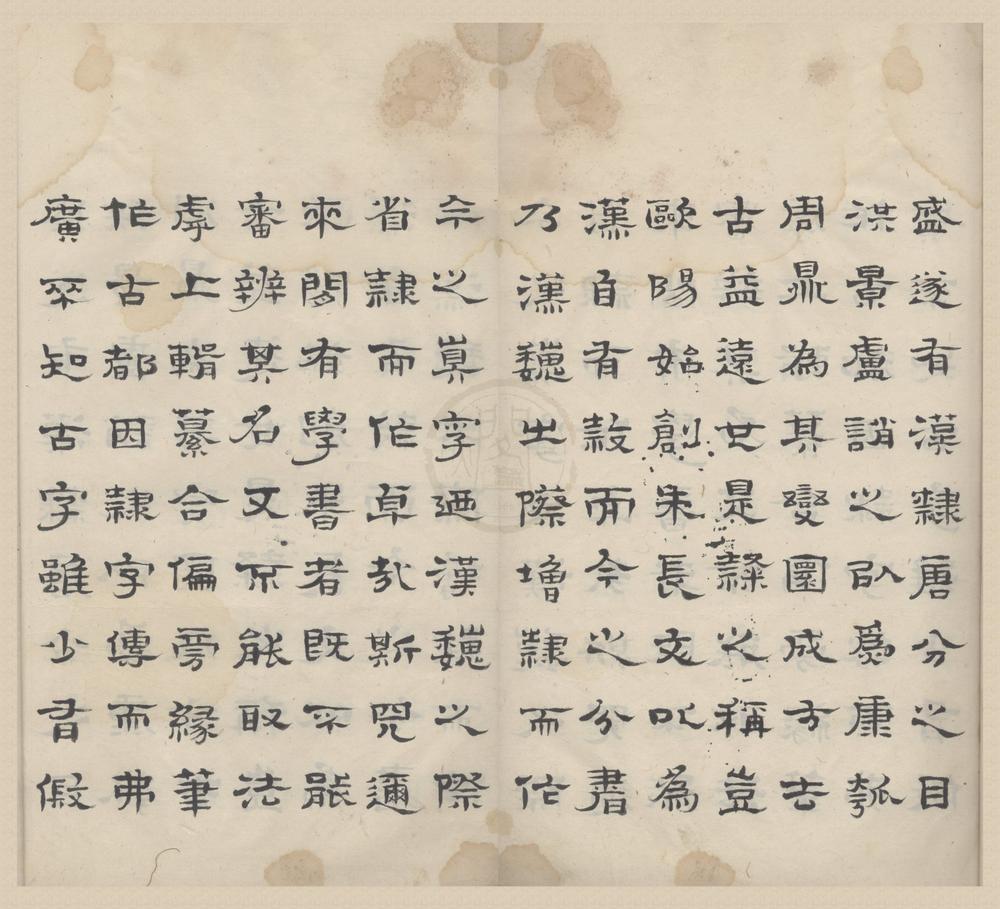 盛遂有漢隸唐分之目
洪景盧誚之以爲康瓠
周鼎為其變圜成方去
古益遠世是隸之稱豈
歐陽始創朱長文以為
漢自有而今之分書
乃漢魏之際增隸而作
今之真字廼漢魏之際
省隸而作卓哉斯見邇
來閒有學書者既不能
審辨其名又能取法
虖上輯纂合偏旁緣筆
作古都因隸字傳而弗
廣不知古字雖少假